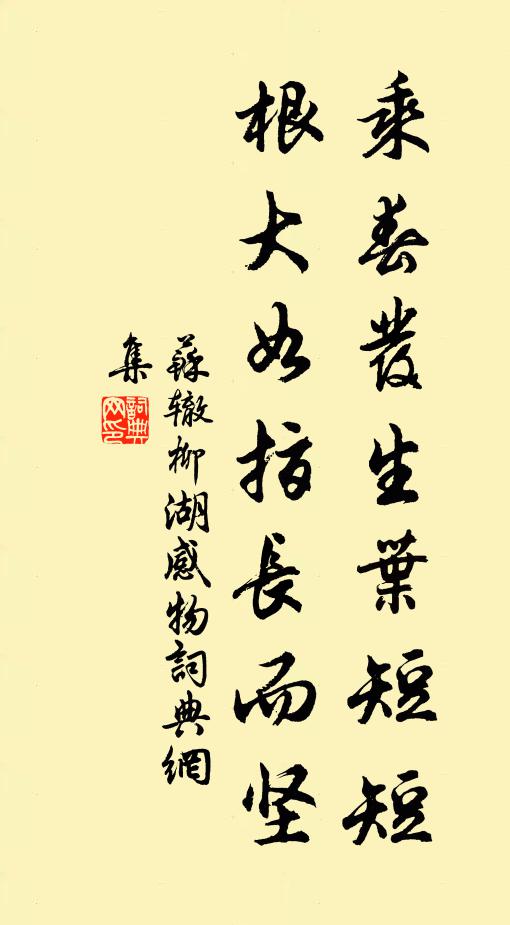 乘春發生葉短短
根大如指長而坚
蘇辙柳湖感物詞典網
集
詞典
网印